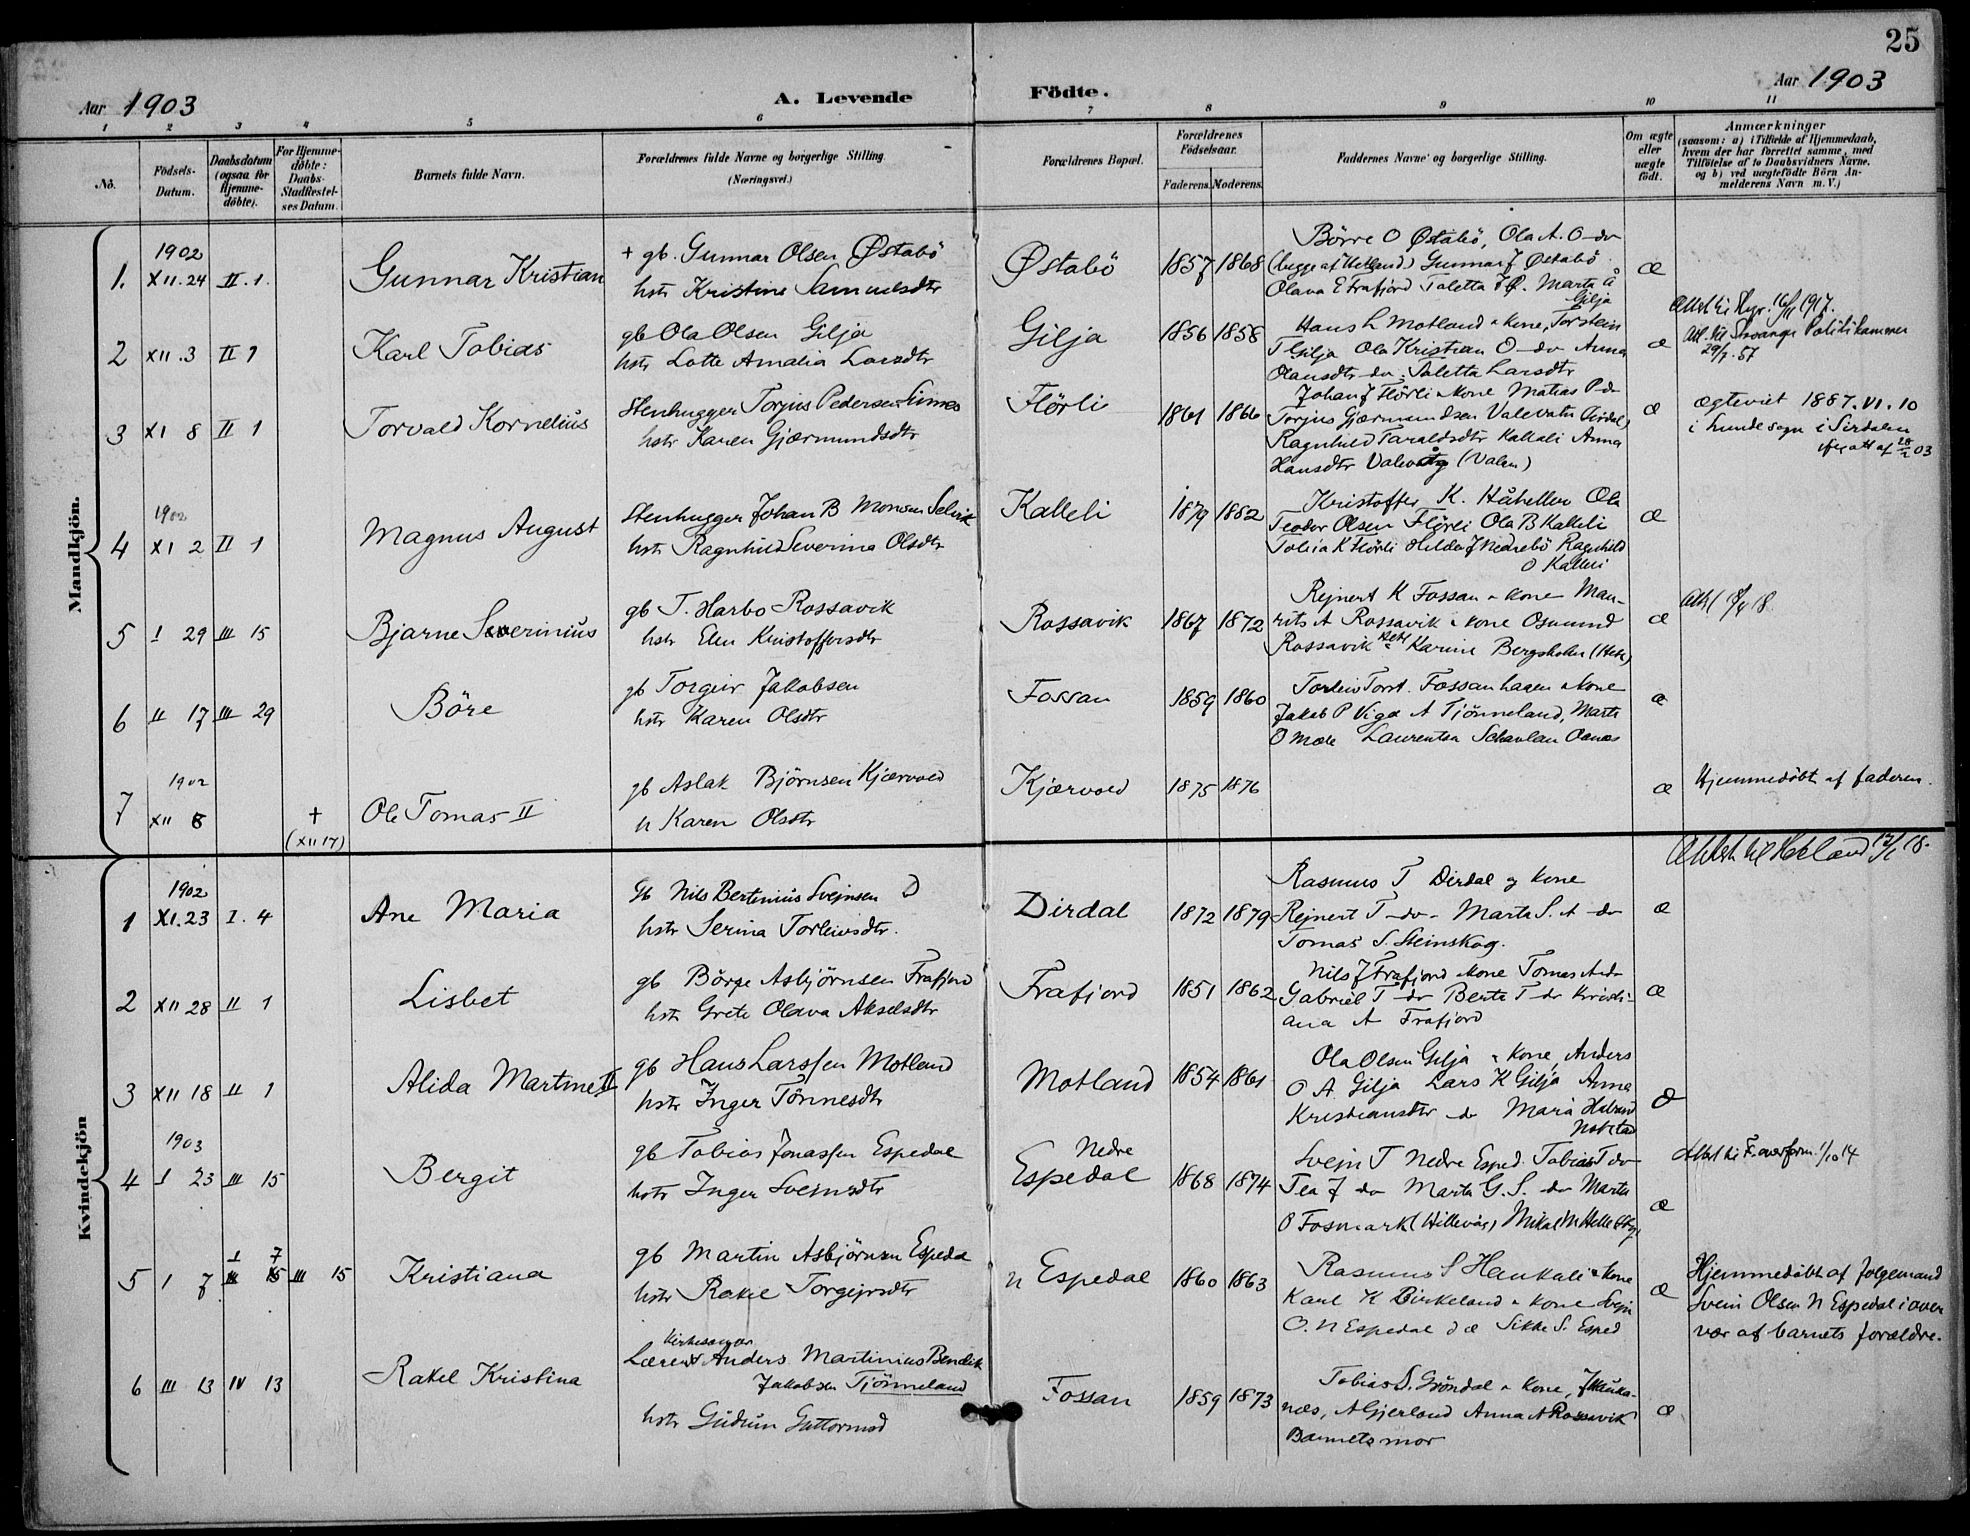 25
Aar 1903 A. Levende Födte. Aar 1903
1 2 3 4 5 6 7 8 9 10 11
No.
Födsels-
Datum.
Daabsdatum
(ogsaa for
Hjemme-
döbte).
For Hjemme-
döbte:
Daabs-
Stadfæstel-
ses Datum.
Barnets fulde Navn.
Forældrenes fulde Navne og borgerlige Stilling
(Næringsvei.)
Forældrenes Bopæl.
Forældrenes
Födselsaar.
Faderens. Moderens.
Faddernes Navne og borgerlige Stilling.
Om ægte
eller
uægte
födt.
Anmærkninger
(saasom: a) i Tilfælde af Hjemmedaab,
hvem der har forrettet samme, med
Tilföielse af to Daabsvidners Navne.
og b) ved uægtefödte Börn An-
melderens Navn m.V.)
Mandkjön.
1902
1. XII.24 II.1. Gunnar Kristian
+ gb. Gunnar Olsen Østabö
hstr Kristine Samuelsdtr
Østabö 1857 1868
Börre O Østabö, Ola A. O do
Gunnar J Østabö
Olava E Frafjord Taletta J Ø. Marta Å
Gilja
æ
2 XII.3 II 1 Karl Tobias
gb Ola Olsen Gilja
hstr Lotte Amalia Larsdtr
Gilja 1856 1858
Hans L Motland & kone, Torstein
T Gilja Ola Kristian O do Anna
Olausdtr do Taletta Larsdtr
æ
Att. til Stavanger Politikammer
29/7. 57
3 XI 8 II 1 Torvald Kornelius
Stenhugger Torjus Pedersen
hstr Karen Gjærmundsdtr
Flörli 1861 1866
Johan J Flörli & kone Matias P do
Torjus Gjærmundsen Valevatn
Ragnhild Taraldsdtr Kalleli Anna
Hansdtr (Valen)
æ
ægteviet 1887.VI.10
i Lunde sogn i Sirdalen
1902
4 XI 2 II 1 Magnus August
Stenhugger Johan B Monsen Selvik
hstr Ragnhild Severina Olsdtr
Kalleli 1879 1882
Kristoffer K. Håheller Ola
Teodor Olsen Flörli Ola B Kalleli
Tobia K Flörli Hilda J Nedrebö Ragnhild
O Kalleli
æ
5 I 29 III 15 Bjarne Severinius
gb T. Harbo Rossavik
hstr Elen Kristoffersdtr
Rossavik 1867 1872
Rejnert K Fossan & kone Mau-
rits A Rossavik & kone Osmund
Rossavik Karine
æ
6 II 17 III 29 Böre
gb Torgeir Jakobsen
hstr Karen Olsdtr
Fossan 1859 1860
Torleiv Torst. Fossan hagen & kone
Jakob P Viga A Tjönneland, Marta
O Mæle Laurentsa
æ
1902
7 XII 8 † (XII 17) Ole Tomas II
gb Aslak Björnsen Kjærvold
h Karen Olsdtr
Kjærvold 1875 1876
æ
Hjemmedöbt af faderen.
Kvindekjön
1902
1 XI.23 I.4 Ane Maria
Gb Nils Bertinius Svejnsen D
hstr Serina Torleivsdtr.
Dirdal 1872 1879
Rasmus T Dirdal og kone
Rejnert T do Marta S. A do
Tomas S. Steinskog.
æ
2 XII 28 II 1 Lisbet
gb Börge Asbjörnsen Frafjord
hstr Grete Olava Akselsdtr
Frafjord 1851 1862
Nils J Frafjord & kone Tomas A do
Gabriel T do Berta T do Kristi-
ana A Frafjord
æ
3 XII 18 II 1 Alida Martine II
gb Hans Larssen Motland
hstr Inger Tönnesdtr
Motland 1854 1861
Ola Olsen Gilja & kone, Anders
O A Gilja Lars K Gilja Anna
Kristiansdtr do Maria
æ
1903
4 I 23 III 15 Bergit
gb Tobias Jonassen Espedal
hstr Inger Sveinsdtr
Nedre
Espedal 1868 1874
Svejn T Nedre Esped. Tobias T do
Tea J do Marta G. S. do Marta
O Fosmark (Hillevåg)
æ
I 7
5 I 7 III 15 III 15 Kristiana
gb Martin Asbjörnsen Espedal
hstr Rakel Torgejrsdtr
N Espedal 1860 1863
Rasmus S Haukali & kone
Karl K Birkeland & kone Svejn
O. N Espedal Sikke S. Esped
æ
Hjemmedöbt af folgemand
Svein Olsen N Espedal i over
vær af barnets forældre.
Kirkesanger
6 III 13 IV 13 Rakel Kristina
Anders Martinius Bendik
Jakobsen Tjönneland
hstr Gudrun Guttormsd
Fossan 1859 1873
Tobias S. Gröndal & kone,
A Gjerland Anna A Rossavik
Barnets mor
æ